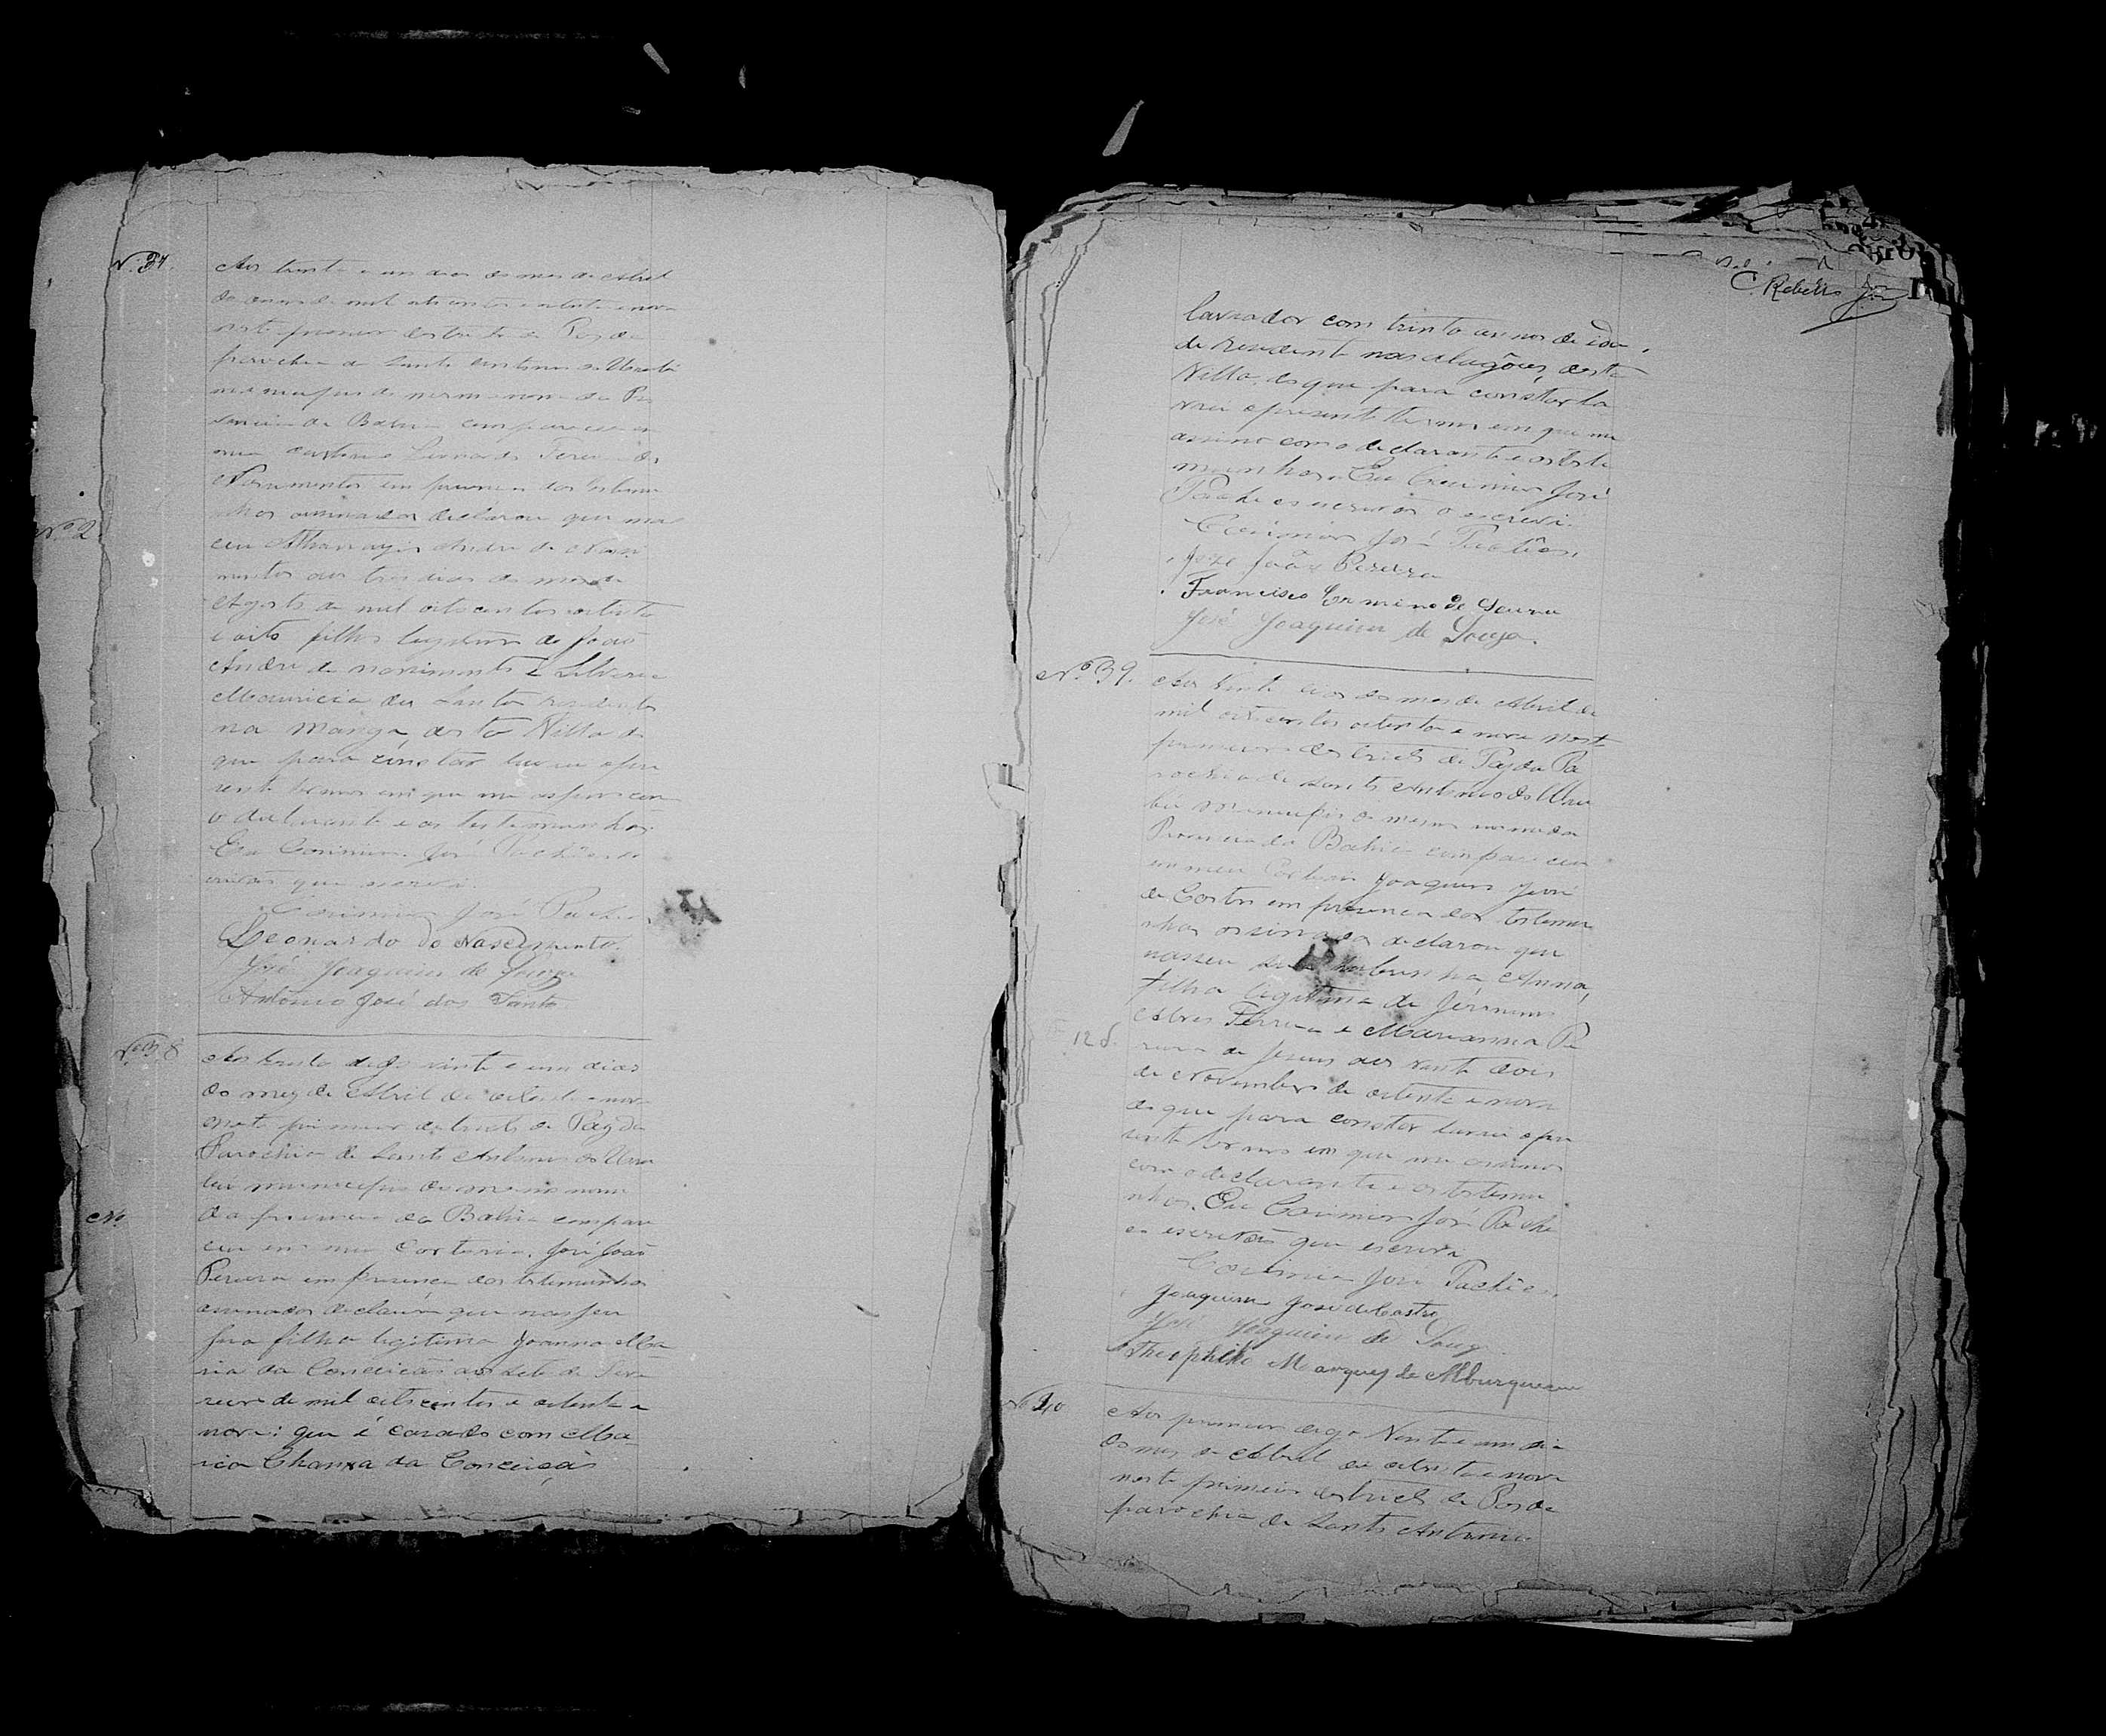 N. 37.
Aos trinta e um dias do mes de Abril
de mil oito centos e oitenta e nove
neste primeiro destricto de Paz da
parochia de Santo Antonio do Urubú
municipio do mesmo nome da Pro
vincia da Bahia compareceu em
meu cartorio Leonardo Ferreira do
Nascimento em presença das testemu
nhas assinadas declarou que nas
ceu Athanazio André do Nasci
mento aos tres dias do mes de
Agosto de mil oito centos oitenta
e oito filho legitimo de João
André do nascimento e Silveria
Mauricia dos Santos residentes
na Manga, desta Villa do
que para constar lavrei o pre
sente termo em que me assino com
o declarante e as testemunhas.
Eu Cacimiro José Pachêco es
crivão que escrevi.
Cacimiro José Pachêco
Leonardo do Nascimento.
José Joaquim de Souza
Antonio José dos Santo
Nº 2
Nº 38
Aos trinta digo vinte e um dias
do mez de Abril de oitenta e nove
neste primeiro destricto de Paz da
Parochia de Santo Antonio do Uru
bú municipio do mesmo nome
da provincia da Bahia compare
ceu em meu Cartorio, José João
Pereira em presença das testemunhas
assinadas declarou que nasceu
sua filha legitima Joanna Ma
ria da Conceição aos sete de Feve
reiro de mil oito centos e oitenta e
nove: que é casado com Ma
ria Chanxa da Conceição
No.
C. Rebello
lavrador com trinta annos de ida
de rezidente nas alagôas, desta
Villa, do que para constar la
vrei o presente termo em que me
assino com o declarante e as teste
munhas. Eu Cacimiro José
Pacheco escrivão o escrevi.
Cacimiro José Pachêco.
Joze João Pereira
Francisco Ermino de Souza
José Joaquim de Souza.
Nº 39.
Aos Vinte dias do mes de Abril de
mil oitocentos oitenta e nove neste
primeiro destricto de Paz da Pa
rochia de Santo Antonio do Uru
bú municipio do mesmo nome da
Provincia da Bahia compareceu
em meu Cartorio Joaquim José
de Castro em presença das testemu
nhas assinadas declarou que
nasceu sua sobrinha Anna,
filha legitima de Jeronimo
Alves Ferreira e Marianna Pe
reira de Jesus aos vinte dois
de Novembro de oitenta e nove
do que para constar lavrei o pre
sente termo em que me assino
com o declarante e as testemu
nhas. Eu Cacimiro José Pache
co escrivão que escrevi
Cacimiro José Pachêco.
Joaquim José de Castro
José Joaquim de Souza
Theophilo Marques de Alburquerque
12 d.
Nº 40
Aos primeiro digo Vinte e um dia
do mes de Abril de oitenta e nove
neste primeiro destricto de Paz da
parochia de Santo Antonio